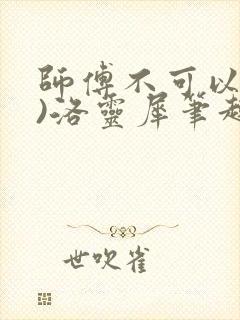 師傅不可以
)洛靈犀筆趣
世吹雀